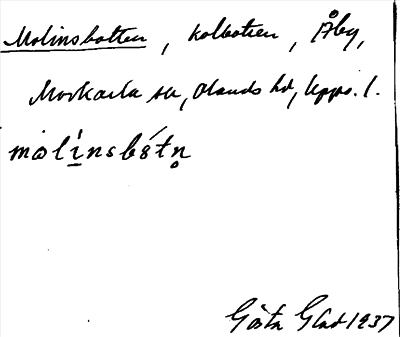 Molinsbotten, kolbotten, Åby,
Morkarla sn, Olands hd, Upps. l.
mɷlínsbótn̥
Gösta Glad 1937